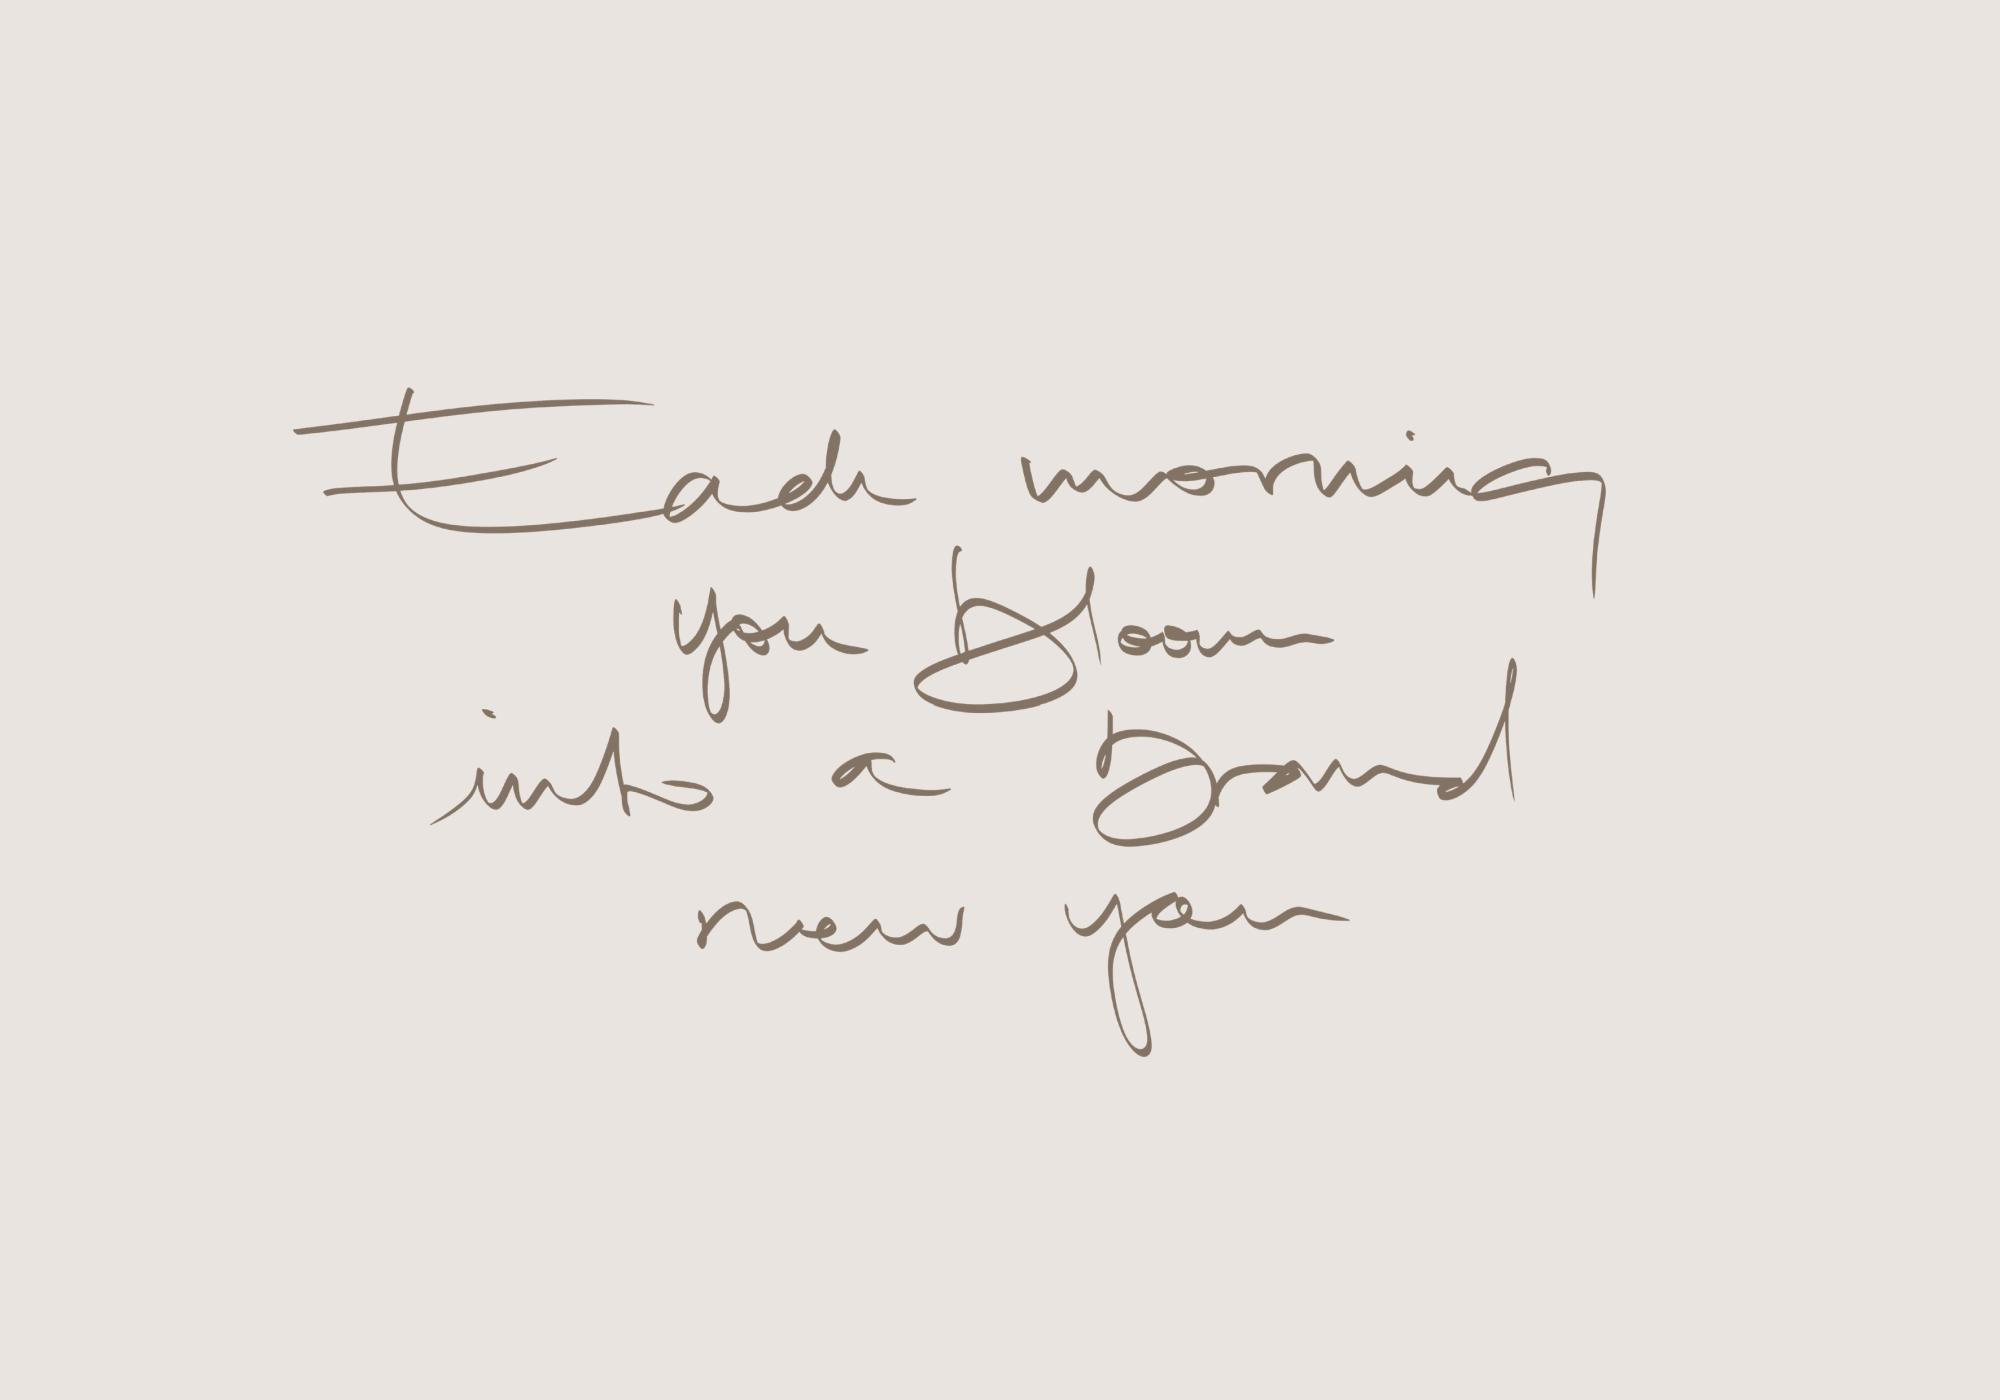 Each morning
you bloom
into a brand
new you